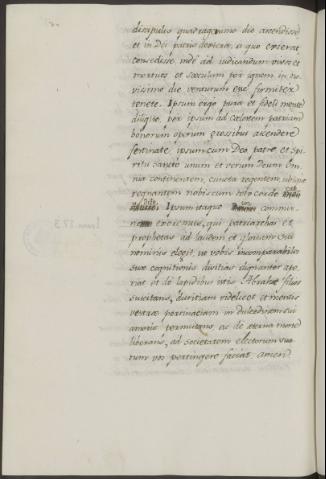 discipulis quadragesimo die ascendisse
et in Dei patris dextera, a quo exierat
consedisse inde ad iudicandum vivos et
mortuos et sæculum per ignem in no-
vissimo die venturum esse firmiter
tenete. Ipsum ergo pura et fideli mente
diligite, per ipsum ad cœlorem patriam
bonorum operum gressibus ascendere
festinate, ipsum cum Deo patre et Spi-
ritu sancto unum et verum Deum om-
nia continentem, cuncta regentem, ubique
regnantem nobiscum toto corde
Ipsum itaque commu-
niter exoremus, qui patriarchas et
prophetas ad laudem et gloriam sui
nominis elegit, ut vobis incomparabiles
suæ cognitionis divitias dignanter ape-
riat et de lapidibus istis Abrahæ filios
suscitans, duritiam videlicet et mentis
vestræ pertinaciam in dulcedinem sui
amoris permutans ac de æterna morte
liberans, ad societatem electorum suo-
rum vos pertingere faciat, amen.